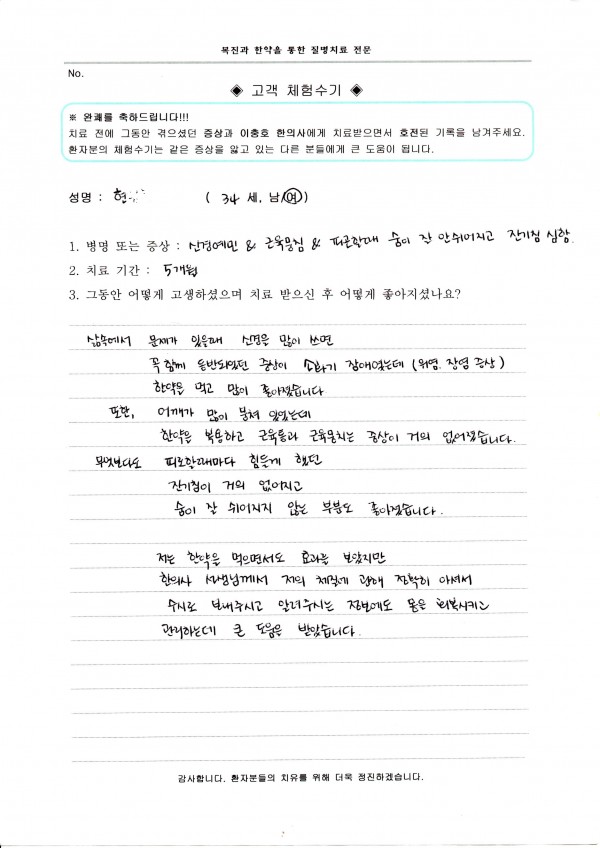 목진과 한약을 통한 질병치료 전문
No.
◈ 고객 체험수기 ◈
※ 완쾌를 축하드립니다!!!
치료 전에 그동안 겪으셨던 증상과 이충호 한의사에게 치료받으면서 호전된 기록을 남겨주세요.
환자분의 체험수기는 같은 증상을 앓고 있는 다른 분들에게 큰 도움이 됩니다.
성명 : 현 ( 34 세, 남/여)
1. 병명 또는 증상 : 신경예민 & 근육뭉침 & 피곤할때 숨이 잘 안쉬어지고 잔기침 심함.
2. 치료 기간 : 5개월
3. 그동안 어떻게 고생하셨으며 치료 받으신 후 어떻게 좋아지셨나요?
삶속에서 문제가 있을때 신경을 많이 쓰면
꼭 함께 동반되었던 증상이 소화기 장애였는데 (위염. 장염 증상)
한약을 먹고 많이 좋아졌습니다
또한, 어깨가 많이 뭉쳐 있었는데
한약을 복용하고 근육통과 근육뭉치는 증상이 거의 없어졌습니다.
무엇보다도 피로할때마다 힘들게 했던
잔기침이 거의 없어지고
숨이 잘 쉬어지지 않는 부분도 좋아졌습니다.
저는 한약을 먹으면서도 효과를 보았지만
한의사 선생님께서 저의 체질에 관해 정확히 아셔서
수시로 보내주시고 알려주시는 정보에도 몸을 회복시키고
관리하는데 큰 도움을 받았습니다.
감사합니다. 환자분들의 치유를 위해 더욱 정진하겠습니다.